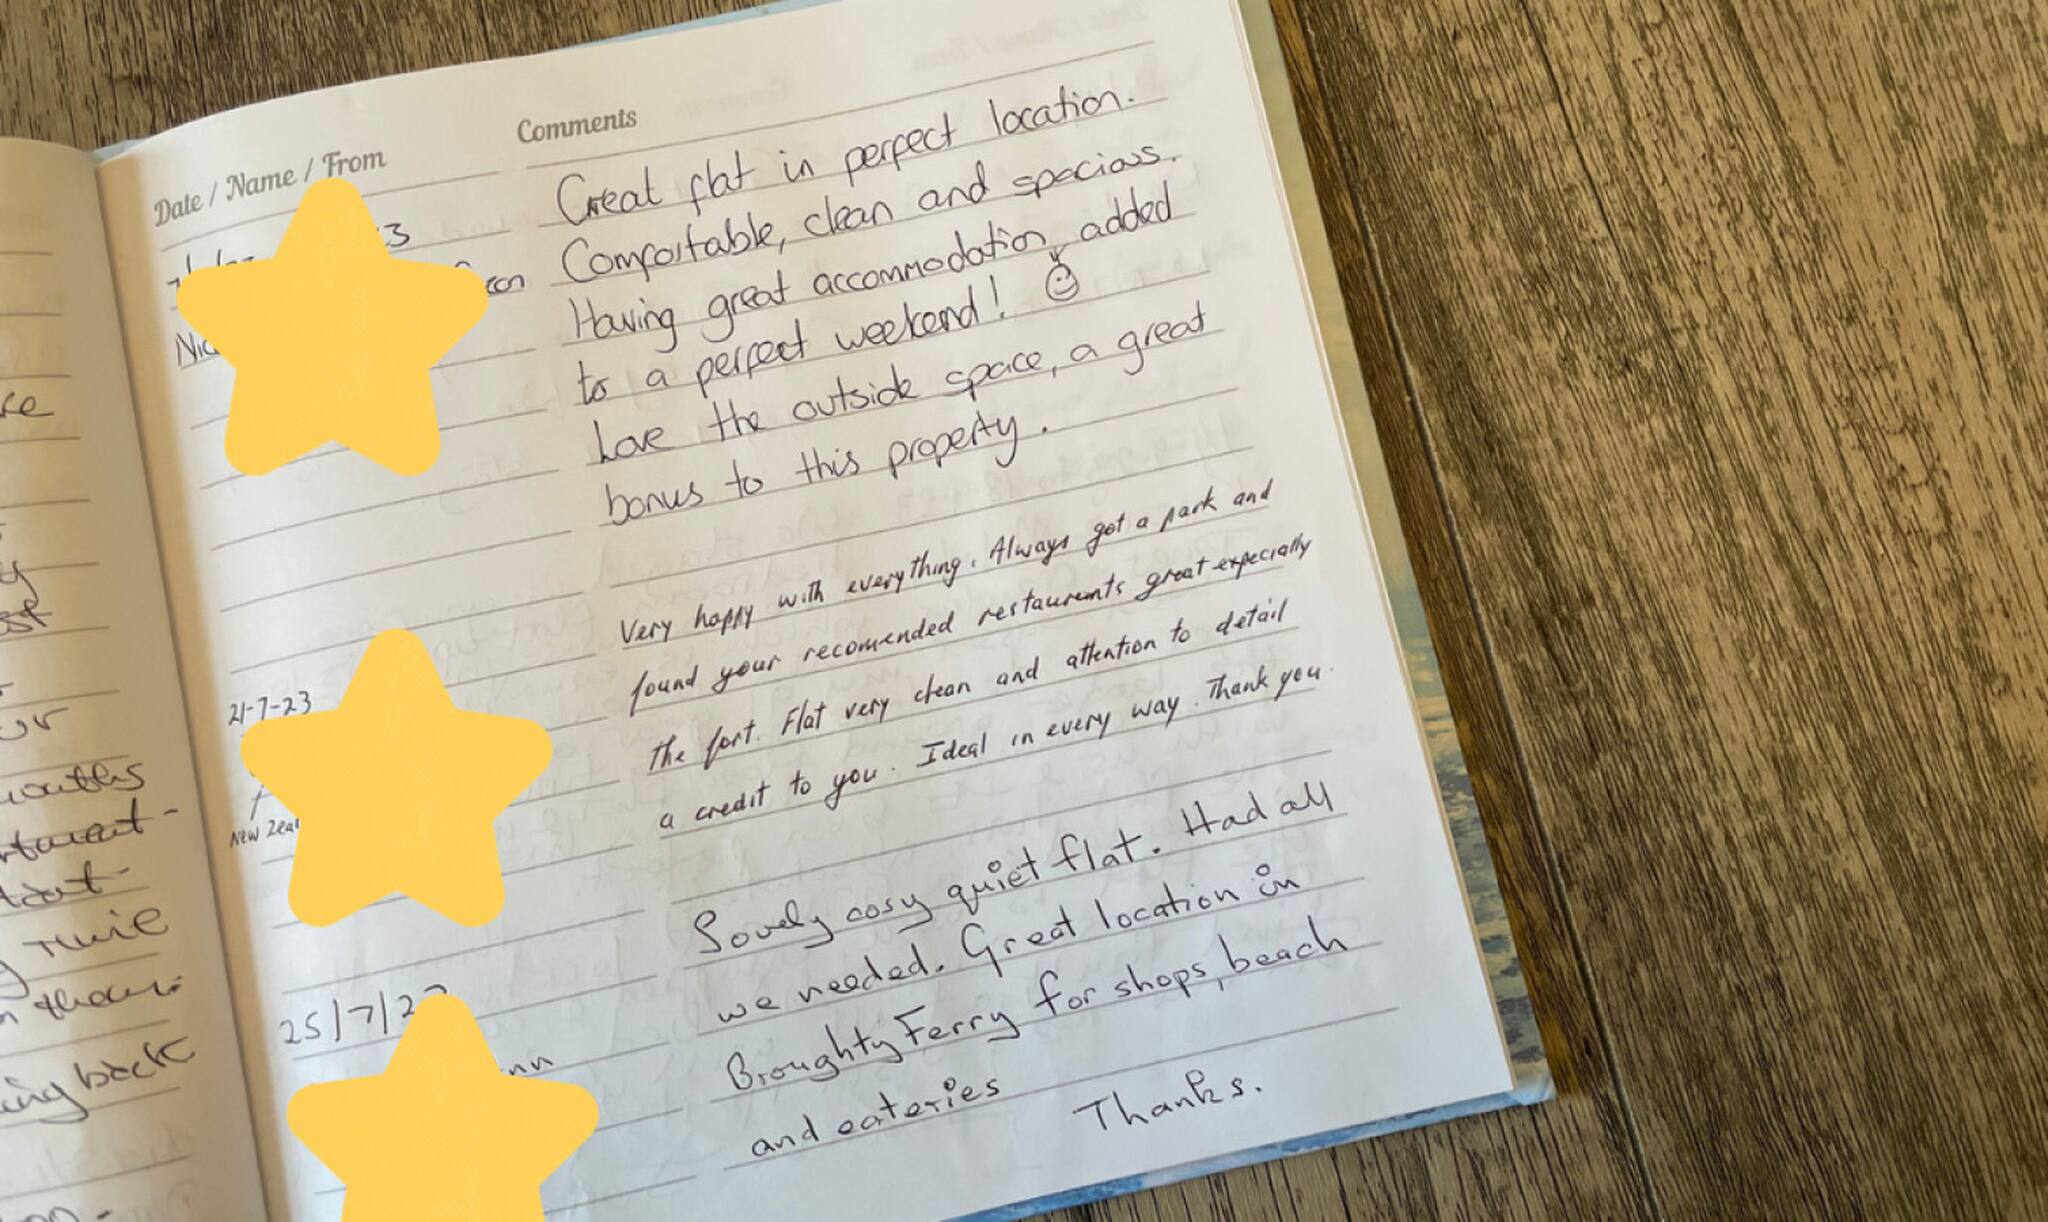 Date / Name / From
Comments
Great flat in perfect location.
Comfortable, clean and spacious.
Having great accommodation, added
to a perfect weekend!
Love the outside space, a great
bonus to this property.
21-7-23
New Zea
Very happy with everything. Always got a park and
found your recomended restaurants great expecially
the fort. Flat very clean and attention to detail
a credit to you. Ideal in every way. Thank you.
25/7/2
Lovely cosy quiet flat. Had all
we needed. Great location in
Broughty Ferry for shops, beach
and eateries Thanks.
back